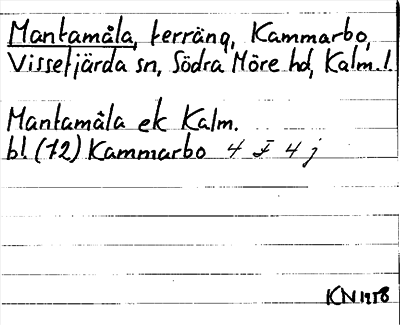 Mantamåla, terräng, Kammarbo,
Vissefjärda sn, Södra Möre hd, Kalm. l.
Mantamåla ek Kalm.
bl (72) Kammarbo 4 I 4 j
KN 1958